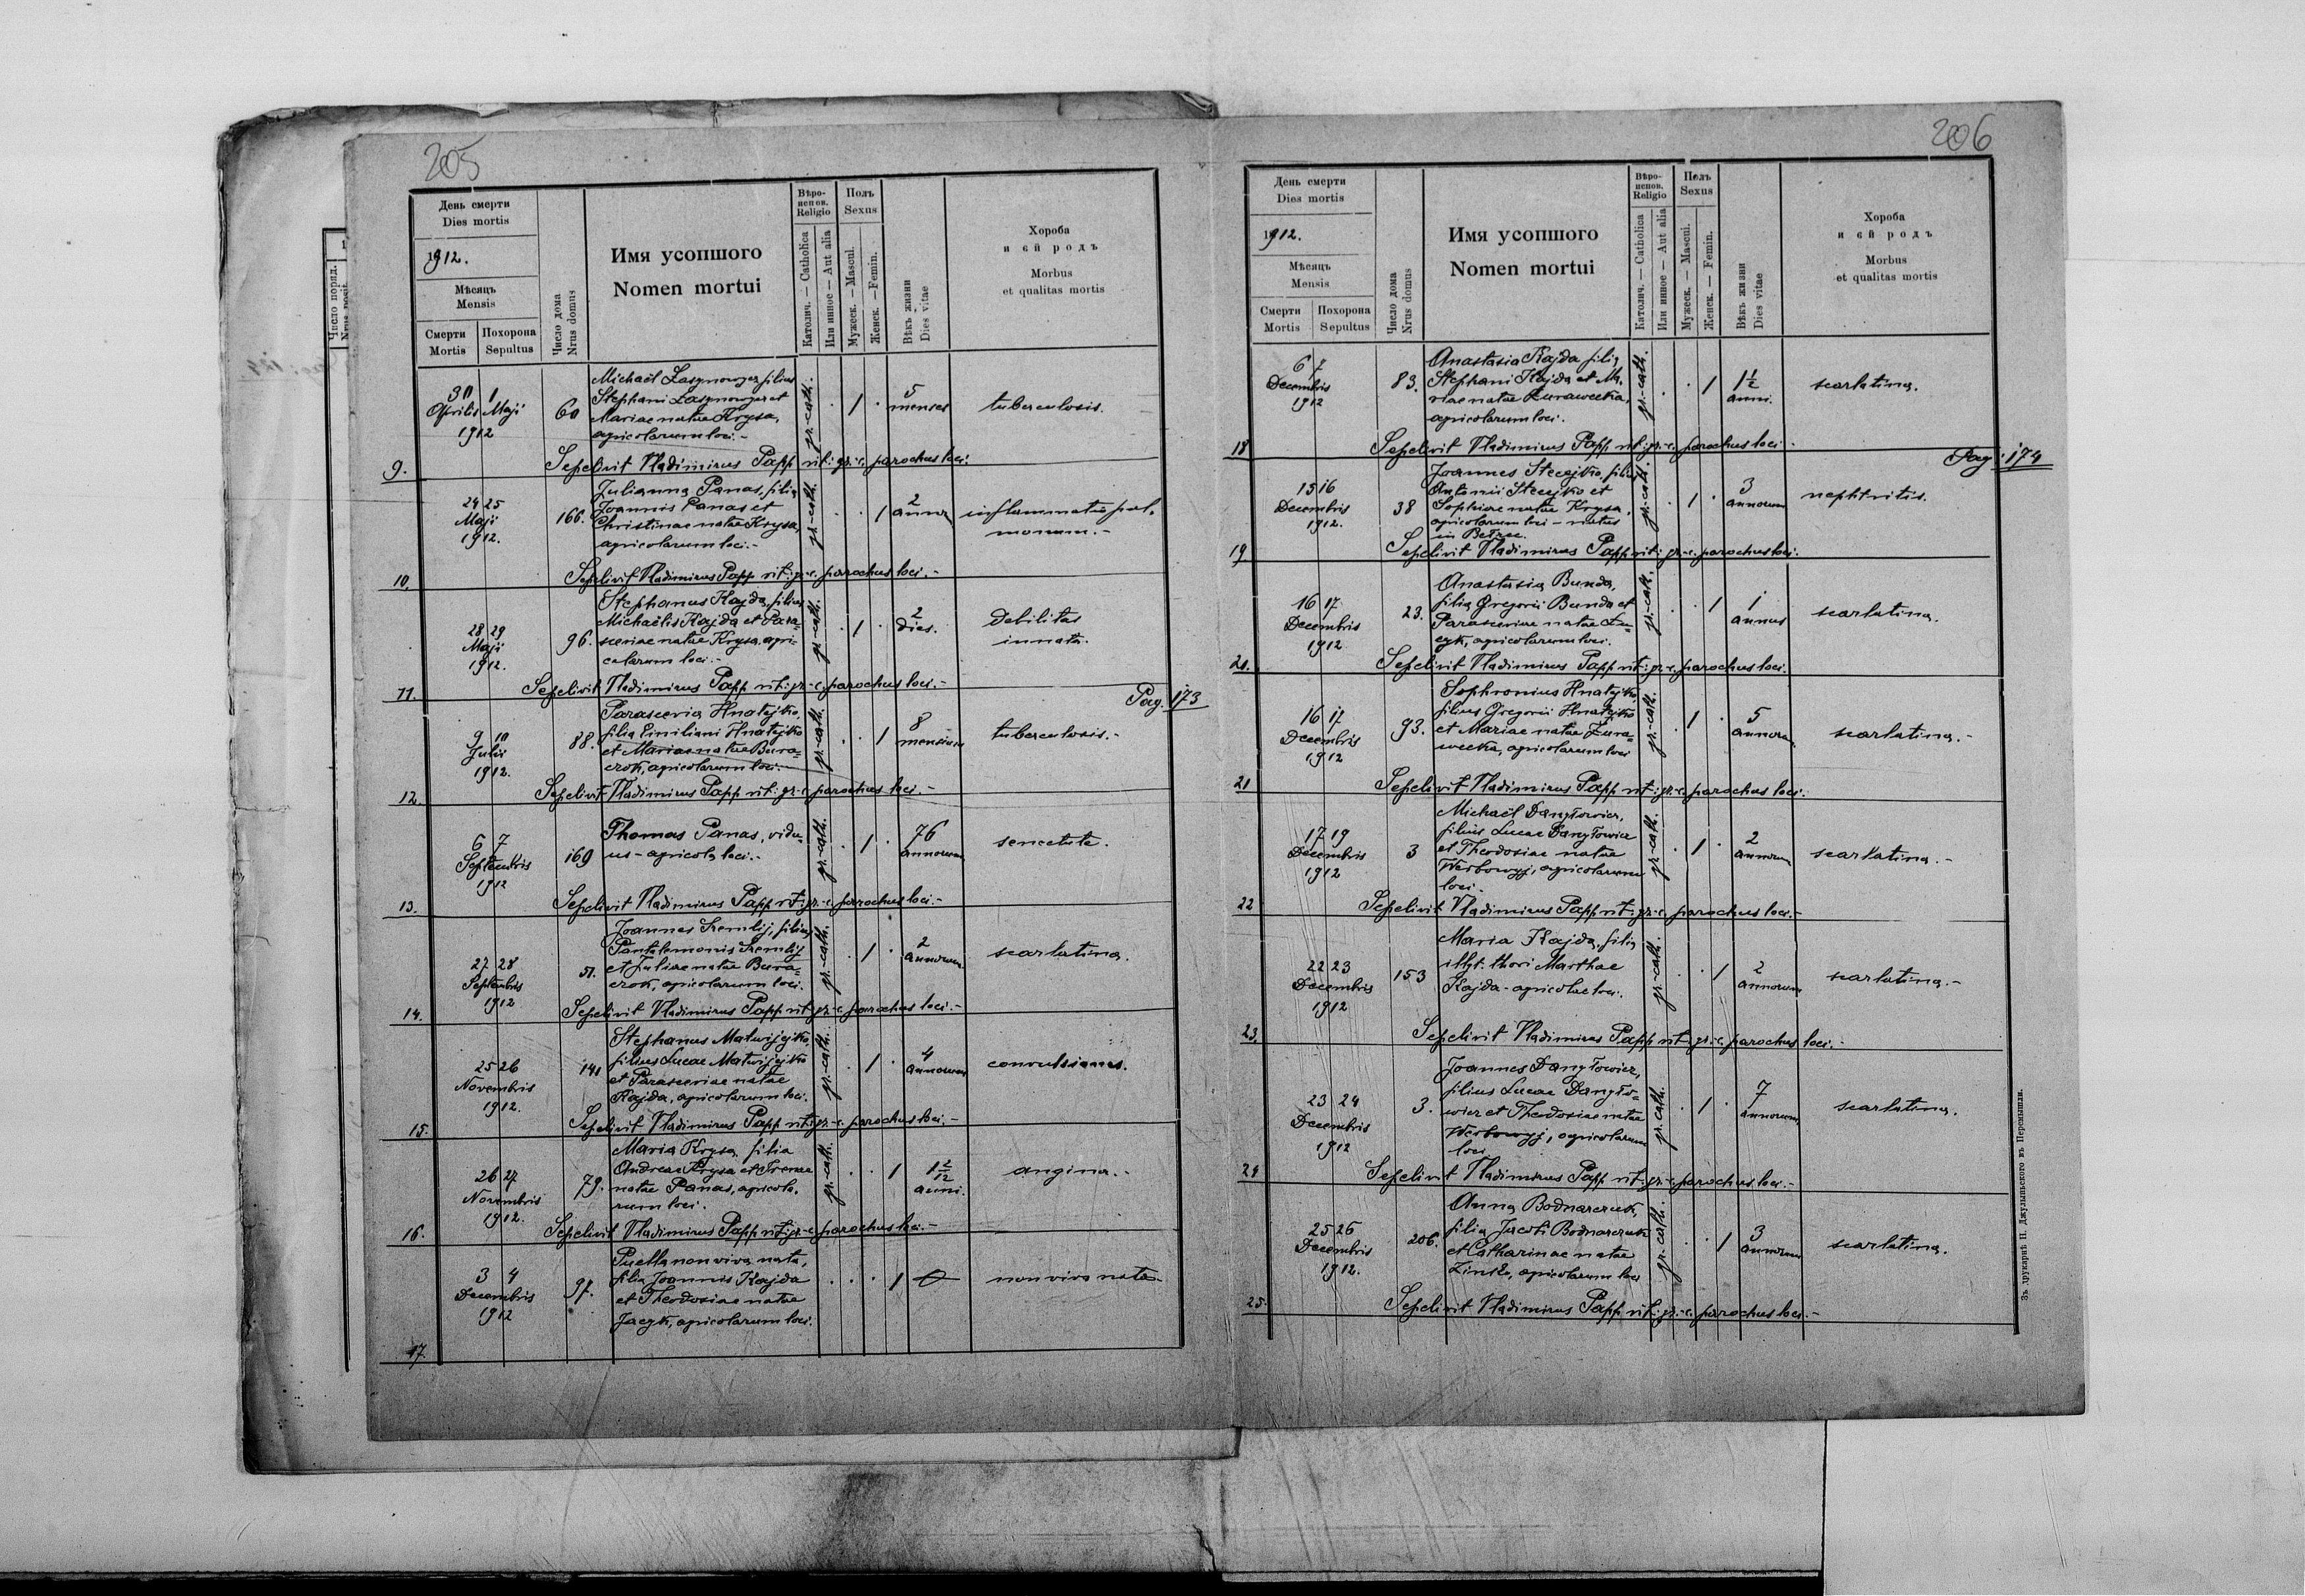 205
День смерти
Dies mortis
1912.
Мѣсяць
Mensis
Смерти
Mortis
Похорона
Sepultus
Число дома
Nrus domus
Имя усопшого
Nomen mortui
Вѣро-
испов.
Religio
Католич. — Catholica
Или инное — Aut alia
Полъ
Sexus
Мужеск. — Mascul.
Женск. — Femin.
Вѣкъ жизни
Dies vitae
Хороба
и єй родъ
Morbus
et qualitas mortis
Число поряд.
30 1
Aprilis Maji
1912
60
Michaël filius
Stephani et
Mariae natae Krysa,
agricolarum loci.-
gr.-cath.
1
5
menses
tuberculosis.
9.
Sepelivit Vladimirus Papp rit: gr.-c. parochus loci.
24 25
Maji
1912.
166.
Julianna Panas, filia
Joannis Panas et
Christinae natae Krysa,
agricolarum loci.-
gr.-cath.
1
2
anno
inflammatio pul-
monum.-
10.
Sepelivit Vladimirus Papp rit: gr.-c. parochus loci.-
28 29
Maji
1912.
96.
Stephanus Kajda, filius
Michaëlis Kajda et Para-
sceviae natae Krysa, agri-
colarum loci.-
gr.-cath.
1
2
dies.
Debilitas
innata.
11.
Sepelivit Vladimirus Papp rit: gr.-c. parochus loci.-
Pag. 173
9 10
Julii
1912.
88.
Parascevia Hnatejko,
filia Emiliani Hnatejko
et Mariae natae Bura-
czok, agricolarum loci.-
gr.-cath.
1
8
mensium
tuberculosis.-
12.
Sepelivit Vladimirus Papp rit: gr.-c. parochus loci.-
6 7
Septembris
1912
169
Thomas Panas, vidu-
us - agricola loci.-
gr.-cath.
1
76
annorum
senectute.
13.
Sepelivit Vladimirus Papp rit: gr.-c. parochus loci.-
27 28
Septembris
1912
51.
Joannes Fremlij, filius
Pantelemonis Fremlij
et Juliae natae Bura-
czok, agricolarum loci.
gr.-cath.
1
2
annorum
scarlatina.
14.
Sepelivit Vladimirus Papp rit: gr.-c. parochus loci.-
25 26
Novembris
1912.
141
Stephanus Matwijejko,
filius Lucae Matwijejko
et Parasceviae natae
Kajda, agricolarum loci.
gr.-cath.
1
4
annorum
convulsiones.
15.
Sepelivit Vladimirus Papp rit: gr.-c. parochus loci.-
26 27
Novembris
1912.
79.
Maria Krysa, filia
Andreae Krysa et Irenae
natae Panas, agricola-
rum loci.
gr.-cath.
1
1 2/12
anni.
angina.-
16.
Sepelivit Vladimirus Papp rit: gr.-c. parochus loci.-
3 4
Decembris
1912
97.
Puella non viva nata,
filia Joannis Kajda
et Theodosiae natae
Jacyk, agricolarum loci.
1
non viva nata-
17.
206
День смерти
Dies mortis
1912.
Мѣсяць
Mensis
Смерти
Mortis
Похорона
Sepultus
Число дома
Nrus domus
Имя усопшого
Nomen mortui
Вѣро-
испов.
Religio
Католич. — Catholica
Или инное — Aut alia
Полъ
Sexus
Мужеск. — Mascul.
Женск. — Femin.
Вѣкъ жизни
Dies vitae
Хороба
и єй родъ
Morbus
et qualitas mortis
6 7
Decembris
1912
83.
Anastasia Kajda filia
Stephani Kajda et Ma-
riae natae Zurawecka,
agricolarum loci.
gr.-cath.
1
1 1/2
anni.
scarlatina.
18
Sepelivit Vladimirus Papp rit: gr.-c. parochus loci-
Pag: 174
15 16
Decembris
1912.
38
Joannes Stecejko, filius
Antonii Stecejko et
Sophiae natae Krysa,
agricolarum loci - natus
in Betzec.
gr.-cath.
1
3
annorum
nephritis.
19
Sepelivit Vladimirus Papp rit: gr.-c. parochus loci.
16 17
Decembris
1912
23.
Anastasia Bunda,
filia Gregorii Bunda et
Parasceviae natae Lu-
cyk, agricolarum loci.
gr.-cath.
1
1
annus
scarlatina.
20.
Sepelivit Vladimirus Papp rit: gr.-c. parochus loci.
16 17
Decembris
1912
93.
Sophronius Hnatejko,
filius Gregorii Hnatejko
et Mariae natae Zura-
wecka, agricolarum loci
gr.-cath.
1
5
annorum
scarlatina.-
21
Sepelivit Vladimirus Papp rit: gr.-c. parochus loci.
17 19
Decembris
1912
3
Michaël Danyłowicz,
filius Lucae Danyłowicz
et Theodosiae natae
Werbowyj, agricolarum
loci.
gr.-cath.
1
2
annorum
scarlatina.-
22
Sepelivit Vladimirus Papp rit: gr.-c. parochus loci.-
22 23
Decembris
1912
153
Maria Kajda, filia
illgt. thori Marthae
Kajda - agricolae loci.
gr.-cath.
1
2
annorum
scarlatina.-
23.
Sepelivit Vladimirus Papp rit: gr.-c. parochus loci.-
23 24
Decembris
1912
3.
Joannes Danyłowicz,
filius Lucae Danyło-
wicz et Theodosiae natae
Werbowyj, agricolarum
loci
gr.-cath.
1
7
annorum
scarlatina.
24
Sepelivit Vladimirus Papp rit: gr.-c. parochus loci.-
25 26
Decembris
1912.
206.
Anna Bodnarczuk,
filia Jacobi Bodnarczuk
et Catharinae natae
Zinko, agricolarum loci
gr.-cath.
1
3
annorum
scarlatina.
25.
Sepelivit Vladimirus Papp rit: gr.-c. parochus loci.-
Зъ друкарнѣ И. Джулыньского въ Перемышли.